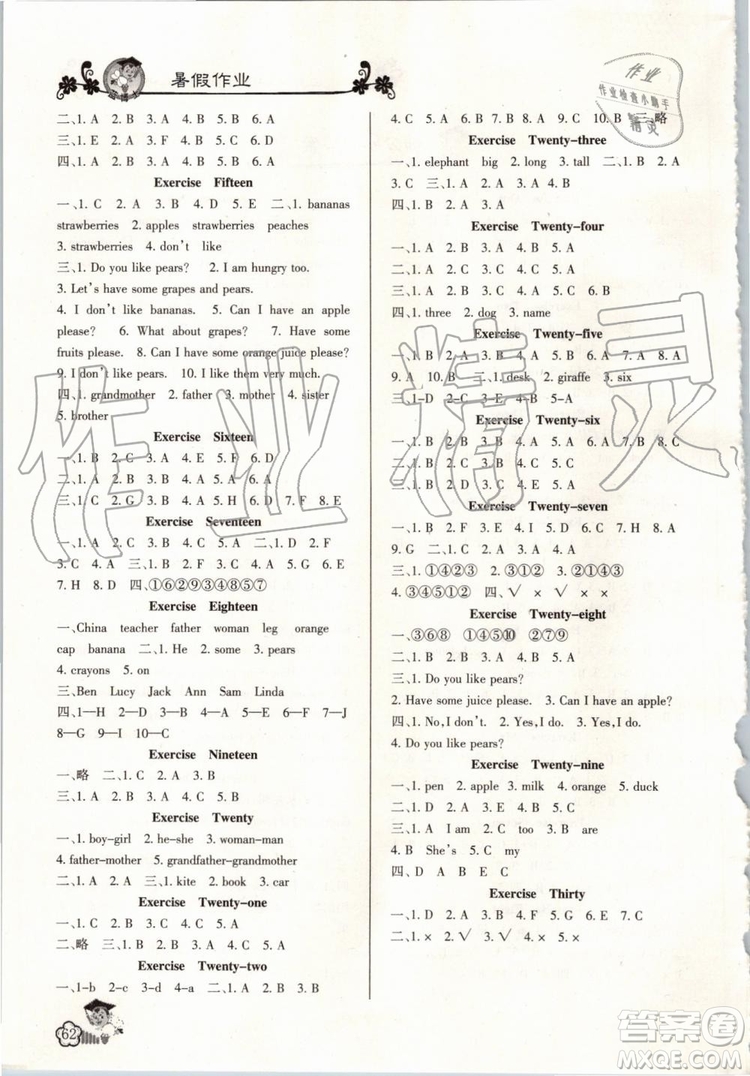 暑假作业
二、1. A 2. B 3. A 4. B 5. A 6. A
三、1. E 2. A 3. B 4. C 5. D
四、1. A 2. B 3. A 4. B 5. A
Exercise Fifteen
一、1. C 2. A 3. B 4. D 二、1. bananas
strawberries 2. apples strawberries peaches
3. strawberries 4. don't like
三、1. Do you like pears? 2. I am hungry too.
3. Let's have some grapes and pears.
4. I don't like bananas. 5. Can I have an apple
please? 6. What about grapes? 7. Have some
fruits please. 8. Can I have some orange juice please?
9. I don't like pears. 10. I like them very much.
四、1. grandmother 2. father 3. mother 4. sister
5. brother
Exercise Sixteen
一、1. B 2. C 3. A 4. E 5. F 6. D
二、1. A 2. B 3. B 4. B 5. A
三、1. C 2. G 3. B 4. A 5. H 6. D 7. F 8. E
Exercise Seventeen
一、1. A 2. C 3. C 4. A 二、1. D 2. F
3. C 4. A 三、1. B 2. F 3. A 4. G 5. C 6. E
7. H 8. D 四、①⑥②⑨③④⑧⑤⑦
Exercise Eighteen
一、China teacher father woman leg orange
cap banana 二、1. He 2. some 3. pears
4. crayons 5. on
三、Ben Lucy Jack Ann Sam Linda
四、1—H 2—B 3—A 4—D 5—I 6—E 7—J
8—G 9—F 10—C
Exercise Nineteen
一、略 二、1. C 2. A 3. A 4. A 5. B
三、1. A 2. B 3. A 4. C 5. B
Exercise Twenty
一、1. boy-girl 2. he-she 3. woman-man
4. father-mother 5. grandfather-grandmother
二、1. C 2. A 三、1. kite 2. book 3. car
Exercise Twenty-one
一、1. C 2. B 3. A 4. C 5. A
二、略 三、1. B 2. A 3. A 4. B 5. A
Exercise Twenty-two
一、1-b 2-c 3-d 4-a 二、1. B 2. C 3. B
62
4. C 5. A 6. B 7. B 8. A 9. C 10. B 三、略
Exercise Twenty-three
一、1. elephant big 2. long 3. tall 二、1. B 2. A
3. C 三、1. B 2. A 3. A 4. B
四、1. B 2. B 3. A 4. B 5. A
Exercise Twenty-four
一、1. A 2. A 3. B 4. B 5. A
二、1. A 2. B 3. B 4. B 5. A
三、1. A 2. A 3. B 4. C 5. C 6. B
四、1. three 2. dog 3. name
Exercise Twenty-five
一、1. B 2. A 3. B 4. B 5. A 6. A 7. A 8. B
9. A 10. B 二、1. desk 2. giraffe 3. six
三、1-D 2-C 3-E 4-B 5-A
Exercise Twenty-six
一、1. B 2. A 3. B 4. C 5. A 6. B 7. B 8. C
二、1. A 2. B 3. A 4. C 5. A
三、1. C 2. D 3. B 4. E 5. A
Exercise Twenty-seven
一、1. B 2. F 3. E 4. I 5. D 6. A 7. C 8. H
9. G 二、1. C 2. A 3. B 4. A
三、1. ①④②③ 2. ③④①② 3. ②①④③
4. ③④⑤①② 四、√ × √ × ×
Exercise Twenty-eight
一、③⑥⑧ ①④⑤⑩ ②⑦⑨
二、1. B 2. B 3. A 三、1. Do you like pears?
2. Have some juice please. 3. Can I have an apple?
四、1. No, I don't. 2. Yes, I do. 3. Yes, I do.
4. Do you like pears?
Exercise Twenty-nine
一、1. pen 2. apple 3. milk 4. orange 5. duck
二、1. D 2. A 3. A 4. C 5. B
三、1. A I am 2. C too 3. B are
4. B She's 5. C my
四、D A B E C
Exercise Thirty
一、1. D 2. A 3. B 4. F 5. G 6. E 7. C
二、1. × 2. √ 3. √ 4. × 5. √
作业
作业检查小助手
精灵
作业精灵
答案圈
MXQE.COM